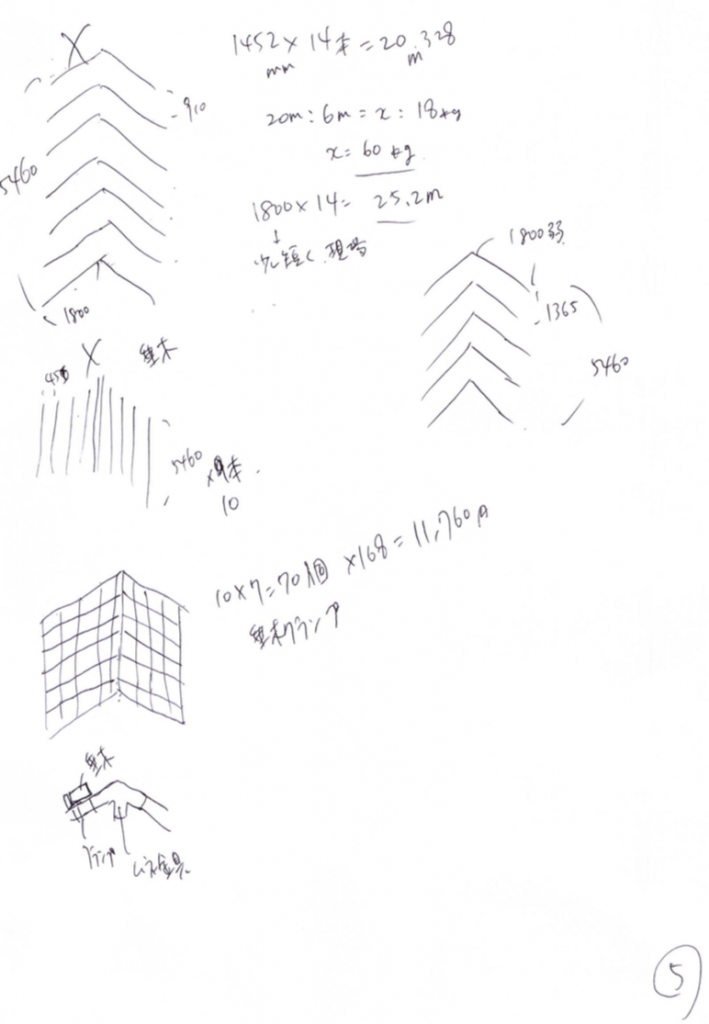 X
1452 × 14本 = 20.328
mm
m
910
20m : 6m = x : 18kg
x = 60 kg
5460
1800 × 14 = 25.2m
↓
少し短く 現場
1800
1800弱
1365
5460
X
垂木
455
5460
× 9本
10
10×7=70個 ×168 = 11,760円
垂木クランプ
垂木
クランプ
ジョイント金具
5